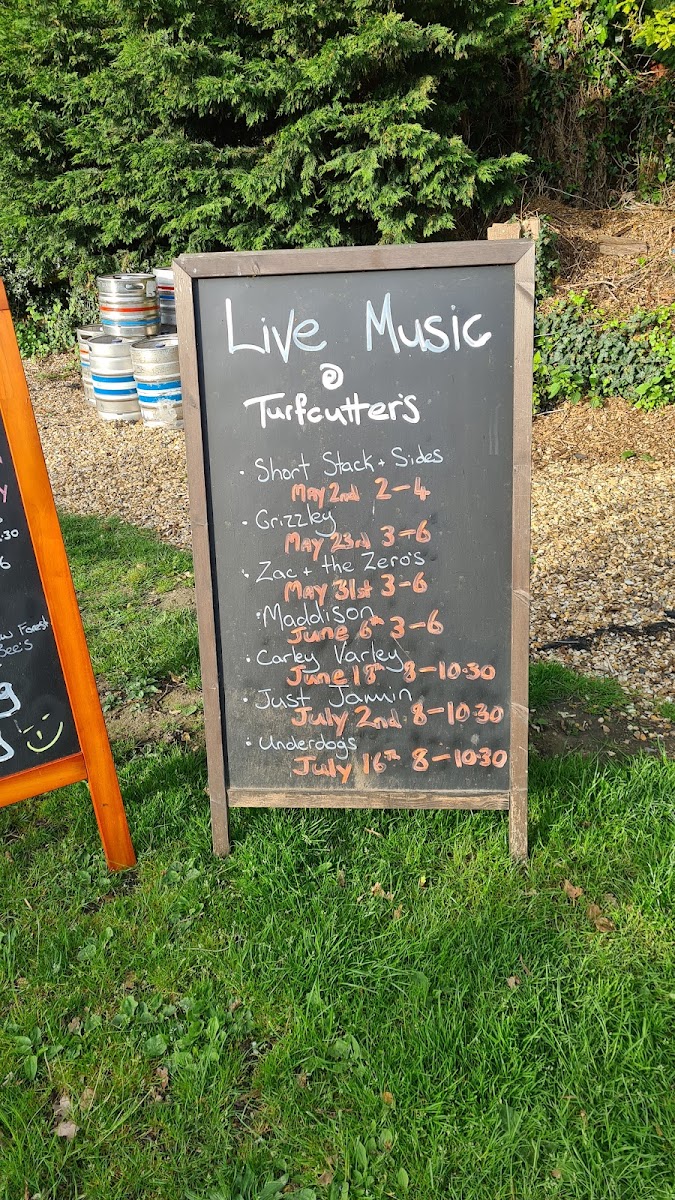 Live Music
@
Turfcutter's
· Short Stack + Sides
May 2nd 2-4
· Grizzley
May 23rd 3-6
· Zac + the Zero's
May 31st 3-6
· Maddison
June 6th 3-6
· Carley Varley
June 18th 8-10.30
· Just Jamin
July 2nd 8-10.30
· Underdogs
July 16th 8-10.30
.30
6
Forest
Bee's